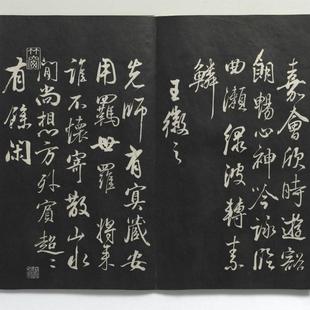 嘉會欣時遊豁
朗暢心神吟詠臨
曲瀨淥波轉素
鱗
王徽之
先師有冥藏安
用羈世羅將來
誰不懷寄散山水
間尚想方外賓超〻
有餘閑